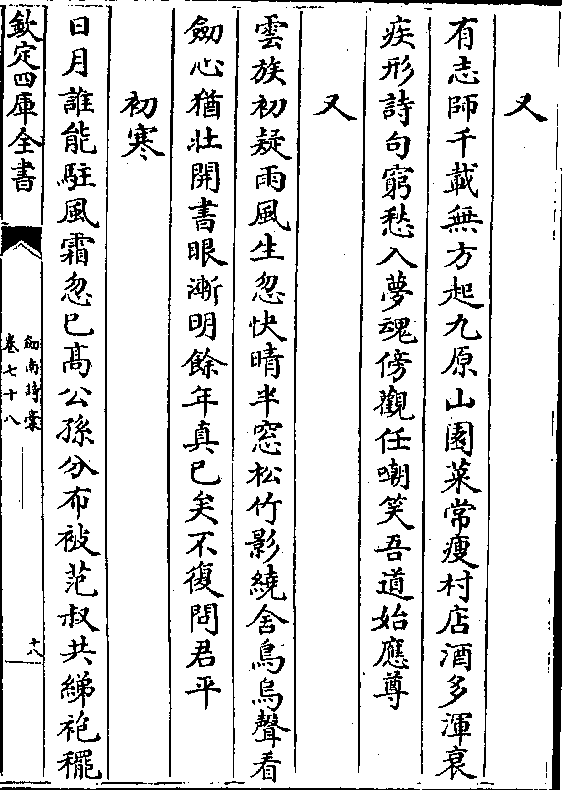 又
有志師千載無方起九原山園菜常瘦村店酒多渾衰
疾形詩句窮愁入夢魂傍觀任嘲笑吾道始應尊
又
雲族初疑雨風生忽快晴半窓松竹影繞舍鳥烏聲看
劒心猶壯開書眼漸明餘年真已矣不復問君平
初寒
日月誰能駐風霜忽已髙公孫分布被范叔共綈袍穲
欽定四庫全書
劒南詩稾
卷七十八
十八